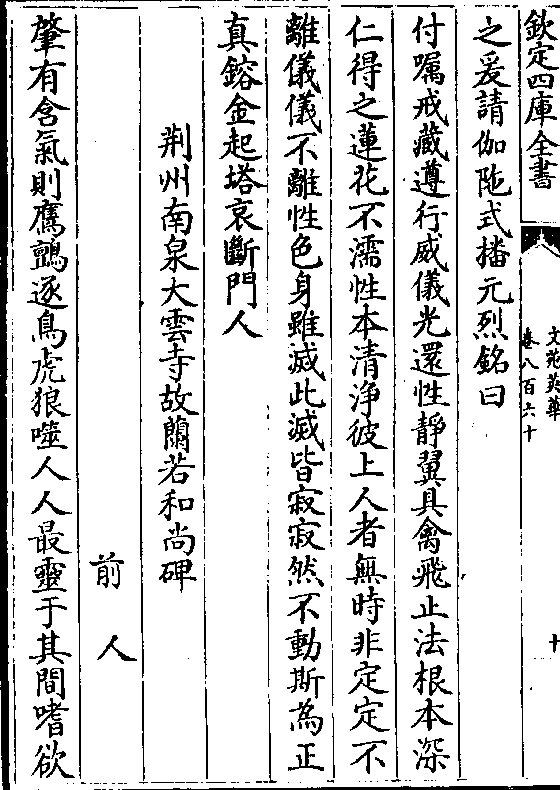 欽定四庫全書
文苑英華
卷八百六十
十
之爰請伽陁式播元烈銘曰
付嘱戒藏遵行威儀光還性靜翼具禽飛止法根本深
仁得之蓮花不濡性本清浄彼上人者無時非定定不
離儀儀不離性色身雖滅此滅皆寂寂然不動斯為正
真鎔金起塔哀斷門人
荆州南泉大雲寺故蘭若和尚碑
前人
肇有含氣則鷹鸇逐鳥虎狼噬人人最靈于其間嗜欲